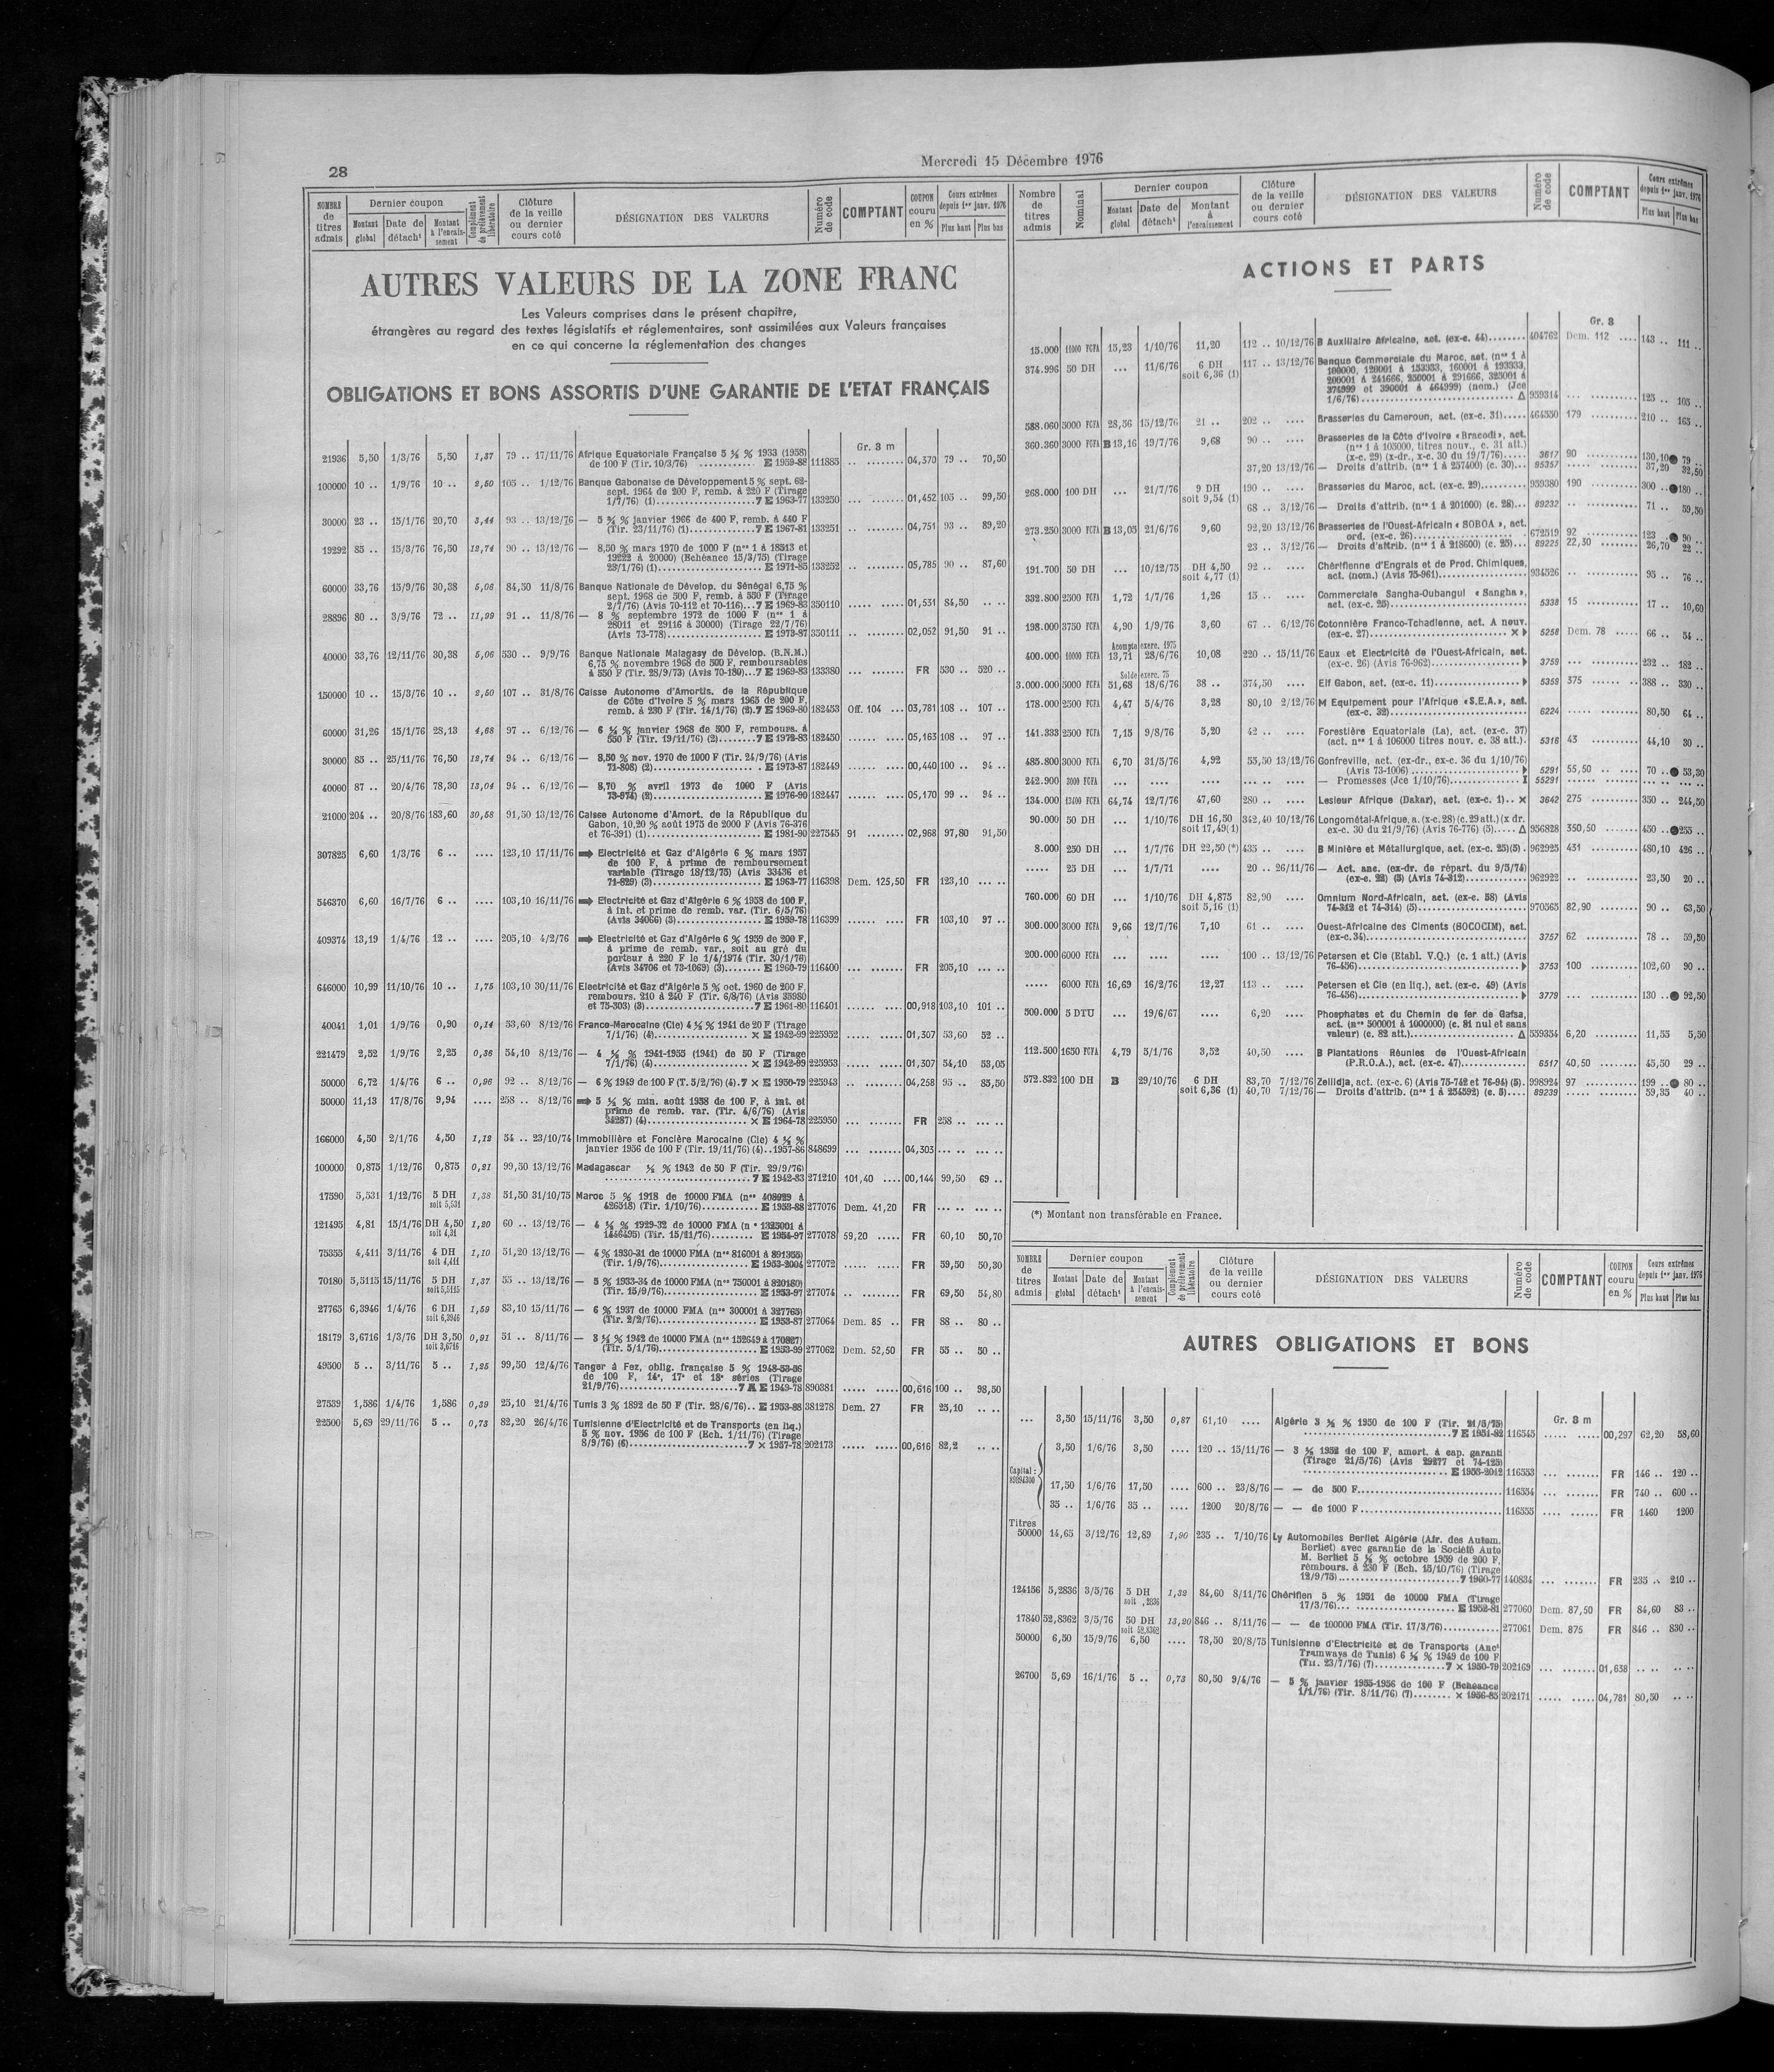 28
Mercredi 15 Décembre 1976
NOMBRE de titres admis | Dernier coupon | Montant global | Date de détach^t | Montant à l'encaissement | Complément de prélèvement libératoire | Clôture de la veille ou dernier cours coté | DÉSIGNATION DES VALEURS | Numéro de code | COMPTANT | COUPON couru en % | Cours extrêmes depuis 1er janv. 1976 | Plus haut | Plus bas
AUTRES VALEURS DE LA ZONE FRANC
Les Valeurs comprises dans le présent chapitre,
étrangères au regard des textes législatifs et réglementaires, sont assimilées aux Valeurs françaises
en ce qui concerne la réglementation des changes
OBLIGATIONS ET BONS ASSORTIS D'UNE GARANTIE DE L'ETAT FRANÇAIS
Gr. 3 m
21936 5,50 1/3/76 5,50 1,37 79 .. 17/11/76 Afrique Equatoriale Française 5 ½ % 1933 (1958)
de 100 F (Tir. 10/3/76) ........... E 1959-88 111885 .. ........ 04,370 79 .. 70,50
100000 10 .. 1/9/76 10 .. 2,50 105 .. 1/12/76 Banque Gabonaise de Développement 5 % sept. 62-
sept. 1964 de 200 F, remb. à 220 F (Tirage
1/7/76) (1)........ 7 E 1963-77 133250 ... ........ 01,452 105 .. 99,50
30000 23 .. 15/1/76 20,70 3,44 93 .. 13/12/76 — 5 ¾ % janvier 1966 de 400 F, remb. à 440 F
(Tir. 23/11/76) (1)........ 7 E 1967-81 133251 .. ........ 04,751 93 .. 89,20
19292 85 .. 15/3/76 76,50 12,74 90 .. 13/12/76 — 8,50 % mars 1970 de 1000 F (nos 1 à 18513 et
19222 à 20000) (Echéance 15/3/75) (Tirage
23/1/76) (1)........ E 1971-85 133252 .. ........ 05,785 90 .. 87,60
60000 33,76 15/9/76 30,38 5,06 84,50 11/8/76 Banque Nationale de Dévelop. du Sénégal 6,75 %
sept. 1968 de 500 F, remb. à 550 F (Tirage
2/7/76) (Avis 70-112 et 70-116)...7 E 1969-83 350110 ..... ..... 01,531 84,50 .. ..
28896 80 .. 3/9/76 72 .. 11,99 91 .. 11/8/76 — 8 % septembre 1972 de 1000 F (nos 1 à
28011 et 29116 à 30000) (Tirage 22/7/76)
(Avis 73-778)........ E 1973-87 350111 .. ........ 02,052 91,50 91 ..
40000 33,76 12/11/76 30,38 5,06 530 .. 9/9/76 Banque Nationale Malagasy de Dévelop. (B.N.M.)
6,75 % novembre 1968 de 500 F, remboursables
à 550 F (Tir. 28/9/73) (Avis 70-180)...7 E 1969-83 133380 ... ........ FR 530 .. 520 ..
150000 10 .. 15/3/76 10 .. 2,50 107 .. 31/8/76 Caisse Autonome d'Amortis. de la République
de Côte d'Ivoire 5 % mars 1965 de 200 F,
remb. à 230 F (Tir. 14/1/76) (2).7 E 1969-80 182453 Off. 104 ... 03,781 108 .. 107 ..
60000 31,26 15/1/76 28,13 4,68 97 .. 6/12/76 — 6 ¼ % janvier 1968 de 500 F, rembours. à
550 F (Tir. 19/11/76) (2)........7 E 1972-83 182450 ...... ..... 05,163 108 .. 97 ..
30000 85 .. 25/11/76 76,50 12,74 94 .. 6/12/76 — 8,50 % nov. 1970 de 1000 F (Tir. 24/9/76) (Avis
71-808) (2)........ E 1973-87 182449 ...... ..... 00,440 100 .. 94 ..
40000 87 .. 20/4/76 78,30 13,04 94 .. 6/12/76 — 8,70 % avril 1973 de 1000 F (Avis
73-974) (2)........ E 1976-90 182447 ...... ..... 05,170 99 .. 94 ..
21000 204 .. 20/8/76 183,60 30,58 91,50 13/12/76 Caisse Autonome d'Amort. de la République du
Gabon, 10,20 % août 1975 de 2000 F (Avis 76-376
et 76-391) (1)........ E 1981-90 227545 91 ....... 02,968 97,80 91,50
307825 6,60 1/3/76 6 .. .... 123,10 17/11/76 ⇒ Electricité et Gaz d'Algérie 6 % mars 1957
de 100 F, à prime de remboursement
variable (Tirage 18/12/75) (Avis 33436 et
71-829) (3)........ E 1963-77 116398 Dem. 125,50 FR 123,10 ... ..
546370 6,60 16/7/76 6 .. .... 103,10 16/11/76 ⇒ Electricité et Gaz d'Algérie 6 % 1958 de 100 F,
à int. et prime de remb. var. (Tir. 6/5/76)
(Avis 34066) (3)........ E 1959-78 116399 ... ....... FR 103,10 97 ..
409374 13,19 1/4/76 12 .. .... 205,10 4/2/76 ⇒ Electricité et Gaz d'Algérie 6 % 1959 de 200 F,
à prime de remb. var., soit au gré du
porteur à 220 F le 1/4/1974 (Tir. 30/1/76)
(Avis 34706 et 73-1069) (3)........ E 1960-79 116400 ... ....... FR 205,10 ... ..
646000 10,99 11/10/76 10 .. 1,75 103,10 30/11/76 Electricité et Gaz d'Algérie 5 % oct. 1960 de 200 F,
rembours. 210 à 240 F (Tir. 6/8/76) (Avis 35980
et 75-303) (3)........7 E 1961-80 116401 ... ........ 00,918 103,10 101 ..
40041 1,01 1/9/76 0,90 0,14 53,60 8/12/76 Franco-Marocaine (Cie) 4 ½ % 1941 de 20 F (Tirage
7/1/76) (4)........ × E 1942-99 225952 ..... ..... 01,307 53,60 52 ..
221479 2,52 1/9/76 2,25 0,36 54,10 8/12/76 — 4 ½ % 1941-1955 (1941) de 50 F (Tirage
7/1/76) (4)........ × E 1942-99 225953 ..... ..... 01,307 54,10 53,05
50000 6,72 1/4/76 6 .. 0,96 92 .. 8/12/76 — 6 % 1949 de 100 F (T. 5/2/76) (4).7 × E 1950-79 225943 .. ........ 04,258 95 .. 85,50
50000 11,13 17/8/76 9,94 .... 258 .. 8/12/76 ⇒ 5 ½ % min. août 1958 de 100 F, à int. et
prime de remb. var. (Tir. 4/6/76) (Avis
34287) (4)........ × E 1964-78 225950 ... ....... FR 258 .. ... ..
166000 4,50 2/1/76 4,50 1,12 54 .. 23/10/74 Immobilière et Foncière Marocaine (Cie) 4 ½ %
janvier 1956 de 100 F (Tir. 19/11/76) (4)..1957-86 848699 ... ....... 04,303 ... .. ... ..
100000 0,875 1/12/76 0,875 0,21 99,50 13/12/76 Madagascar ½ % 1942 de 50 F (Tir. 29/9/76)
........7 E 1942-83 271210 101,40 .... 00,144 99,50 69 ..
17590 5,531 1/12/76 5 DH soit 5,531 1,38 51,50 31/10/75 Maroc 5 % 1918 de 10000 FMA (nos 408929 à
426518) (Tir. 1/10/76)........ E 1953-88 277076 Dem. 41,20 FR ... .. ... ..
121495 4,81 15/1/76 DH 4,50 soit 4,31 1,20 60 .. 13/12/76 — 4 ½ % 1929-32 de 10000 FMA (n° 1325001 à
1446495) (Tir. 15/11/76)........ E 1954-97 277078 59,20 ..... FR 60,10 50,70
75355 4,411 3/11/76 4 DH soit 4,411 1,10 51,20 13/12/76 — 4 % 1930-31 de 10000 FMA (nos 816001 à 891355)
(Tir. 1/9/76)........ E 1953-2004 277072 ..... ..... FR 59,50 50,30
70180 5,5115 15/11/76 5 DH soit 5,5115 1,37 55 .. 13/12/76 — 5 % 1933-34 de 10000 FMA (nos 750001 à 820180)
(Tir. 15/9/76)........ E 1953-97 277074 .. ........ FR 69,50 54,80
27765 6,3946 1/4/76 6 DH soit 6,3946 1,59 83,10 15/11/76 — 6 % 1937 de 10000 FMA (nos 300001 à 327765)
(Tir. 2/2/76)........ E 1953-87 277064 Dem. 85 .. FR 88 .. 80 ..
18179 3,6716 1/3/76 DH 3,50 soit 3,6716 0,91 51 .. 8/11/76 — 3 ½ % 1942 de 10000 FMA (nos 152649 à 170827)
(Tir. 5/1/76)........ E 1953-99 277062 Dem. 52,50 FR 55 .. 50 ..
49500 5 .. 3/11/76 5 .. 1,25 99,50 12/4/76 Tanger à Fez, oblig. française 5 % 1948-53-56
de 100 F, 14e, 17e et 18e séries (Tirage
21/9/76)........7 A E 1949-78 890381 ..... ..... 00,616 100 .. 98,50
27539 1,586 1/4/76 1,586 0,39 25,10 21/4/76 Tunis 3 % 1892 de 50 F (Tir. 28/6/76).. E 1953-88 381278 Dem. 27 FR 25,10 .. ..
22500 5,69 29/11/76 5 .. 0,73 82,20 26/4/76 Tunisienne d'Electricité et de Transports (en liq.)
5 % nov. 1956 de 100 F (Ech. 1/11/76) (Tirage
8/9/76) (6)........7 × 1957-78 202173 ..... ..... 00,616 82,2 .. ..
Nombre de titres admis | Nominal | Dernier coupon | Montant global | Date de détach^t | Montant à l'encaissement | Clôture de la veille ou dernier cours coté | DÉSIGNATION DES VALEURS | Numéro de code | COMPTANT | Cours extrêmes depuis 1er janv. 1976 | Plus haut | Plus bas
ACTIONS ET PARTS
Gr. 3
15.000 11000 FCFA 15,23 1/10/76 11,20 112 .. 10/12/76 B Auxiliaire Africaine, act. (ex-c. 44)........ 404762 Dem. 112 .... 143 .. 111 ..
374.996 50 DH ... 11/6/76 6 DH soit 6,36 (1) 117 .. 13/12/76 Banque Commerciale du Maroc, act. (nos 1 à
100000, 120001 à 153333, 160001 à 193333,
200001 à 241666, 250001 à 291666, 325001 à
374999 et 390001 à 464999) (nom.) (Jce
1/6/76)........ Δ 959314 ... .......... 125 .. 105 ..
588.060 5000 FCFA 28,56 15/12/76 21 .. 202 .. .... Brasseries du Cameroun, act. (ex-c. 31)..... 464550 179 .......... 210 .. 165 ..
360.360 3000 FCFA B 13,16 19/7/76 9,68 90 .. .... Brasseries de la Côte d'Ivoire « Bracodi », act.
(nos 1 à 105000, titres nouv., c. 31 att.)
(x-c. 29) (x-dr., x-c. 30 du 19/7/76)..... 3617 90 .......... 130,10 ● 79 ..
37,20 13/12/76 — Droits d'attrib. (nos 1 à 257400) (c. 30)... 95357 ..... ......... 37,20 32,50
268.000 100 DH ... 21/7/76 9 DH soit 9,54 (1) 190 .. .... Brasseries du Maroc, act. (ex-c. 29)......... 959380 190 .......... 300 .. ● 180 ..
68 .. 3/12/76 — Droits d'attrib. (nos 1 à 201000) (c. 28)... 89232 .. .......... 71 .. 59,50
273.250 3000 FCFA B 13,05 21/6/76 9,60 92,20 13/12/76 Brasseries de l'Ouest-Africain « SOBOA », act.
ord. (ex-c. 26)........ 672519 92 .......... 123 .. ● 90 ..
23 .. 3/12/76 — Droits d'attrib. (nos 1 à 218600) (c. 25)... 89225 22,30 ........ 26,70 22 ..
191.700 50 DH ... 10/12/75 DH 4,50 soit 4,77 (1) 92 .. .... Chérifienne d'Engrais et de Prod. Chimiques,
act. (nom.) (Avis 75-961)........ 934526 .. .......... 95 .. 76 ..
332.800 2500 FCFA 1,72 1/7/76 1,26 15 .. .... Commerciale Sangha-Oubangui « Sangha »,
act. (ex-c. 25)........ 5338 15 .......... 17 .. 10,60
198.000 3750 FCFA 4,90 1/9/76 3,60 67 .. 6/12/76 Cotonnière Franco-Tchadienne, act. A nouv.
(ex-c. 27)........ × ▶ 5258 Dem. 78 ..... 66 .. 54 ..
Acompte exerc. 1975
400.000 10000 FCFA 13,71 28/6/76 10,08 220 .. 15/11/76 Eaux et Electricité de l'Ouest-Africain, act.
(ex-c. 26) (Avis 76-962)........ ▶ 3759 ... .......... 232 .. 182 ..
Solde exerc. 75
3.000.000 5000 FCFA 51,68 18/6/76 38 .. 374,50 .... Elf Gabon, act. (ex-c. 11)........ ▶ 5359 375 ...... .... 388 .. 330 ..
178.000 2500 FCFA 4,47 5/4/76 3,28 80,10 2/12/76 M Equipement pour l'Afrique «S.E.A.», act.
(ex-c. 32)........ 6224 ..... ......... 80,50 64 ..
141.333 2500 FCFA 7,15 9/8/76 5,20 42 .. .... Forestière Equatoriale (La), act. (ex-c. 37)
(act. nos 1 à 106000 titres nouv. c. 38 att.). 5316 43 .......... 44,10 30 ..
485.800 3000 FCFA 6,70 31/5/76 4,92 55,50 13/12/76 Gonfreville, act. (ex-dr., ex-c. 36 du 1/10/76)
(Avis 73-1006)........ ▶ 5291 55,50 .. .... 70 .. ● 53,30
242.900 3000 FCFA .... .... .... ... .. .... — Promesses (Jce 1/10/76)........ I 55291 ... .......... ... .. ... ..
134.000 13400 FCFA 64,74 12/7/76 47,60 280 .. .... Lesieur Afrique (Dakar), act. (ex-c. 1).. × 3642 275 .......... 350 .. 244,50
90.000 50 DH ... 1/10/76 DH 16,50 soit 17,49(1) 342,40 10/12/76 Longométal-Afrique, a. (x-c. 28) (c. 29 att.) (x dr.
ex-c. 30 du 21/9/76) (Avis 76-776) (5)..... Δ 956828 350,50 ...... 450 .. ● 255 ..
8.000 250 DH ... 1/7/76 DH 22,50 (*) 435 .. .... B Minière et Métallurgique, act. (ex-c. 25)(5) . 962925 431 .......... 480,10 426 ..
..... 25 DH ... 1/7/71 .... 20 .. 26/11/76 — Act. anc. (ex-dr. de répart. du 9/5/74)
(ex-c. 22) (5) (Avis 74-312)........ 962922 .. .......... 23,50 20 ..
760.000 60 DH ... 1/10/76 DH 4,875 soit 5,16 (1) 82,90 .... Omnium Nord-Africain, act. (ex-c. 58) (Avis
74-312 et 74-314) (5)........ 970565 82,90 ........ 90 .. 63,50
300.000 3000 FCFA 9,66 12/7/76 7,10 61 .. .... Ouest-Africaine des Ciments (SOCOCIM), act.
(ex-c.34)........ 3757 62 .......... 78 .. 59,50
200.000 6000 FCFA .... .... .... 100 .. 13/12/76 Petersen et Cie (Etabl. V.Q.) (c. 1 att.) (Avis
76-456)........ ▶ 3753 100 .......... 102,60 90 ..
..... 6000 FCFA 16,69 16/2/76 12,27 113 .. .... Petersen et Cie (en liq.), act. (ex-c. 49) (Avis
76-456)........ ▶ 3779 ... .......... 130 .. ● 92,50
500.000 5 DTU ... 19/6/67 .... 6,20 .... Phosphates et du Chemin de fer de Gafsa,
act. (nos 500001 à 1000000) (c. 81 nul et sans
valeur) (c. 82 att.)........ Δ 559354 6,20 ......... 11,55 5,50
112.500 1650 FCFA 4,79 5/1/76 3,52 40,50 .... B Plantations Réunies de l'Ouest-Africain
(P.R.O.A.), act. (ex-c. 47)........ 6517 40,50 ........ 45,50 29 ..
572.832 100 DH B 29/10/76 6 DH soit 6,36 (1) 83,70 7/12/76 Zellidja, act. (ex-c. 6) (Avis 75-742 et 76-94) (5). 998924 97 .......... 199 .. ● 80 ..
40,70 7/12/76 — Droits d'attrib. (nos 1 à 254592) (c. 5).... 89239 ..... ........ 59,35 40 ..
(*) Montant non transférable en France.
NOMBRE de titres admis | Dernier coupon | Montant global | Date de détach^t | Montant à l'encaissement | Complément de prélèvement libératoire | Clôture de la veille ou dernier cours coté | DÉSIGNATION DES VALEURS | Numéro de code | COMPTANT | COUPON couru en % | Cours extrêmes depuis 1er janv. 1976 | Plus haut | Plus bas
AUTRES OBLIGATIONS ET BONS
Gr. 3 m
... 3,50 15/11/76 3,50 0,87 61,10 .... Algérie 3 ½ % 1950 de 100 F (Tir. 21/5/75)
........7 E 1951-82 116545 ..... ..... 00,297 62,20 58,60
Capital : 82294300
3,50 1/6/76 3,50 .... 120 .. 15/11/76 — 3 ½ 1952 de 100 F, amort. à cap. garanti
(Tirage 21/5/76) (Avis 29277 et 74-125)
........ E 1953-2012 116553 ... ....... FR 146 .. 120 ..
17,50 1/6/76 17,50 .... 600 .. 23/8/76 — — de 500 F........ 116554 ... ....... FR 740 .. 600 ..
35 .. 1/6/76 35 .. .... 1200 20/8/76 — — de 1000 F........ 116555 .... ...... FR 1460 1200
Titres
50000 14,65 3/12/76 12,89 1,90 235 .. 7/10/76 Ly Automobiles Berliet Algérie (Afr. des Autom.
Berliet) avec garantie de la Société Auto
M. Berliet 5 ½ % octobre 1959 de 200 F,
rembours. à 230 F (Ech. 15/10/76) (Tirage
12/9/75)........7 1960-77 140834 ... ....... FR 235 .. 210 ..
124156 5,2836 3/5/76 5 DH soit ,2836 1,32 84,60 8/11/76 Chérifien 5 % 1951 de 10000 FMA (Tirage
17/3/76)... ........ E 1952-81 277060 Dem. 87,50 FR 84,60 83 ..
17840 52,8362 3/5/76 50 DH soit 52,8362 13,20 846 .. 8/11/76 — — de 100000 FMA (Tir. 17/3/76)........ 277061 Dem. 875 FR 846 .. 830 ..
50000 6,50 15/9/76 6,50 .... 78,50 20/8/75 Tunisienne d'Electricité et de Transports (Anct
Tramways de Tunis) 6 ½ % 1949 de 100 F
(Tir. 23/7/76) (7)........7 × 1950-79 202169 ... ....... 01,638 .. .. .. ..
26700 5,69 16/1/76 5 .. 0,73 80,50 9/4/76 — 5 % janvier 1955-1956 de 100 F (Echéance
1/1/76) (Tir. 8/11/76) (7)........ × 1956-85 202171 ..... ..... 04,781 80,50 .. ..